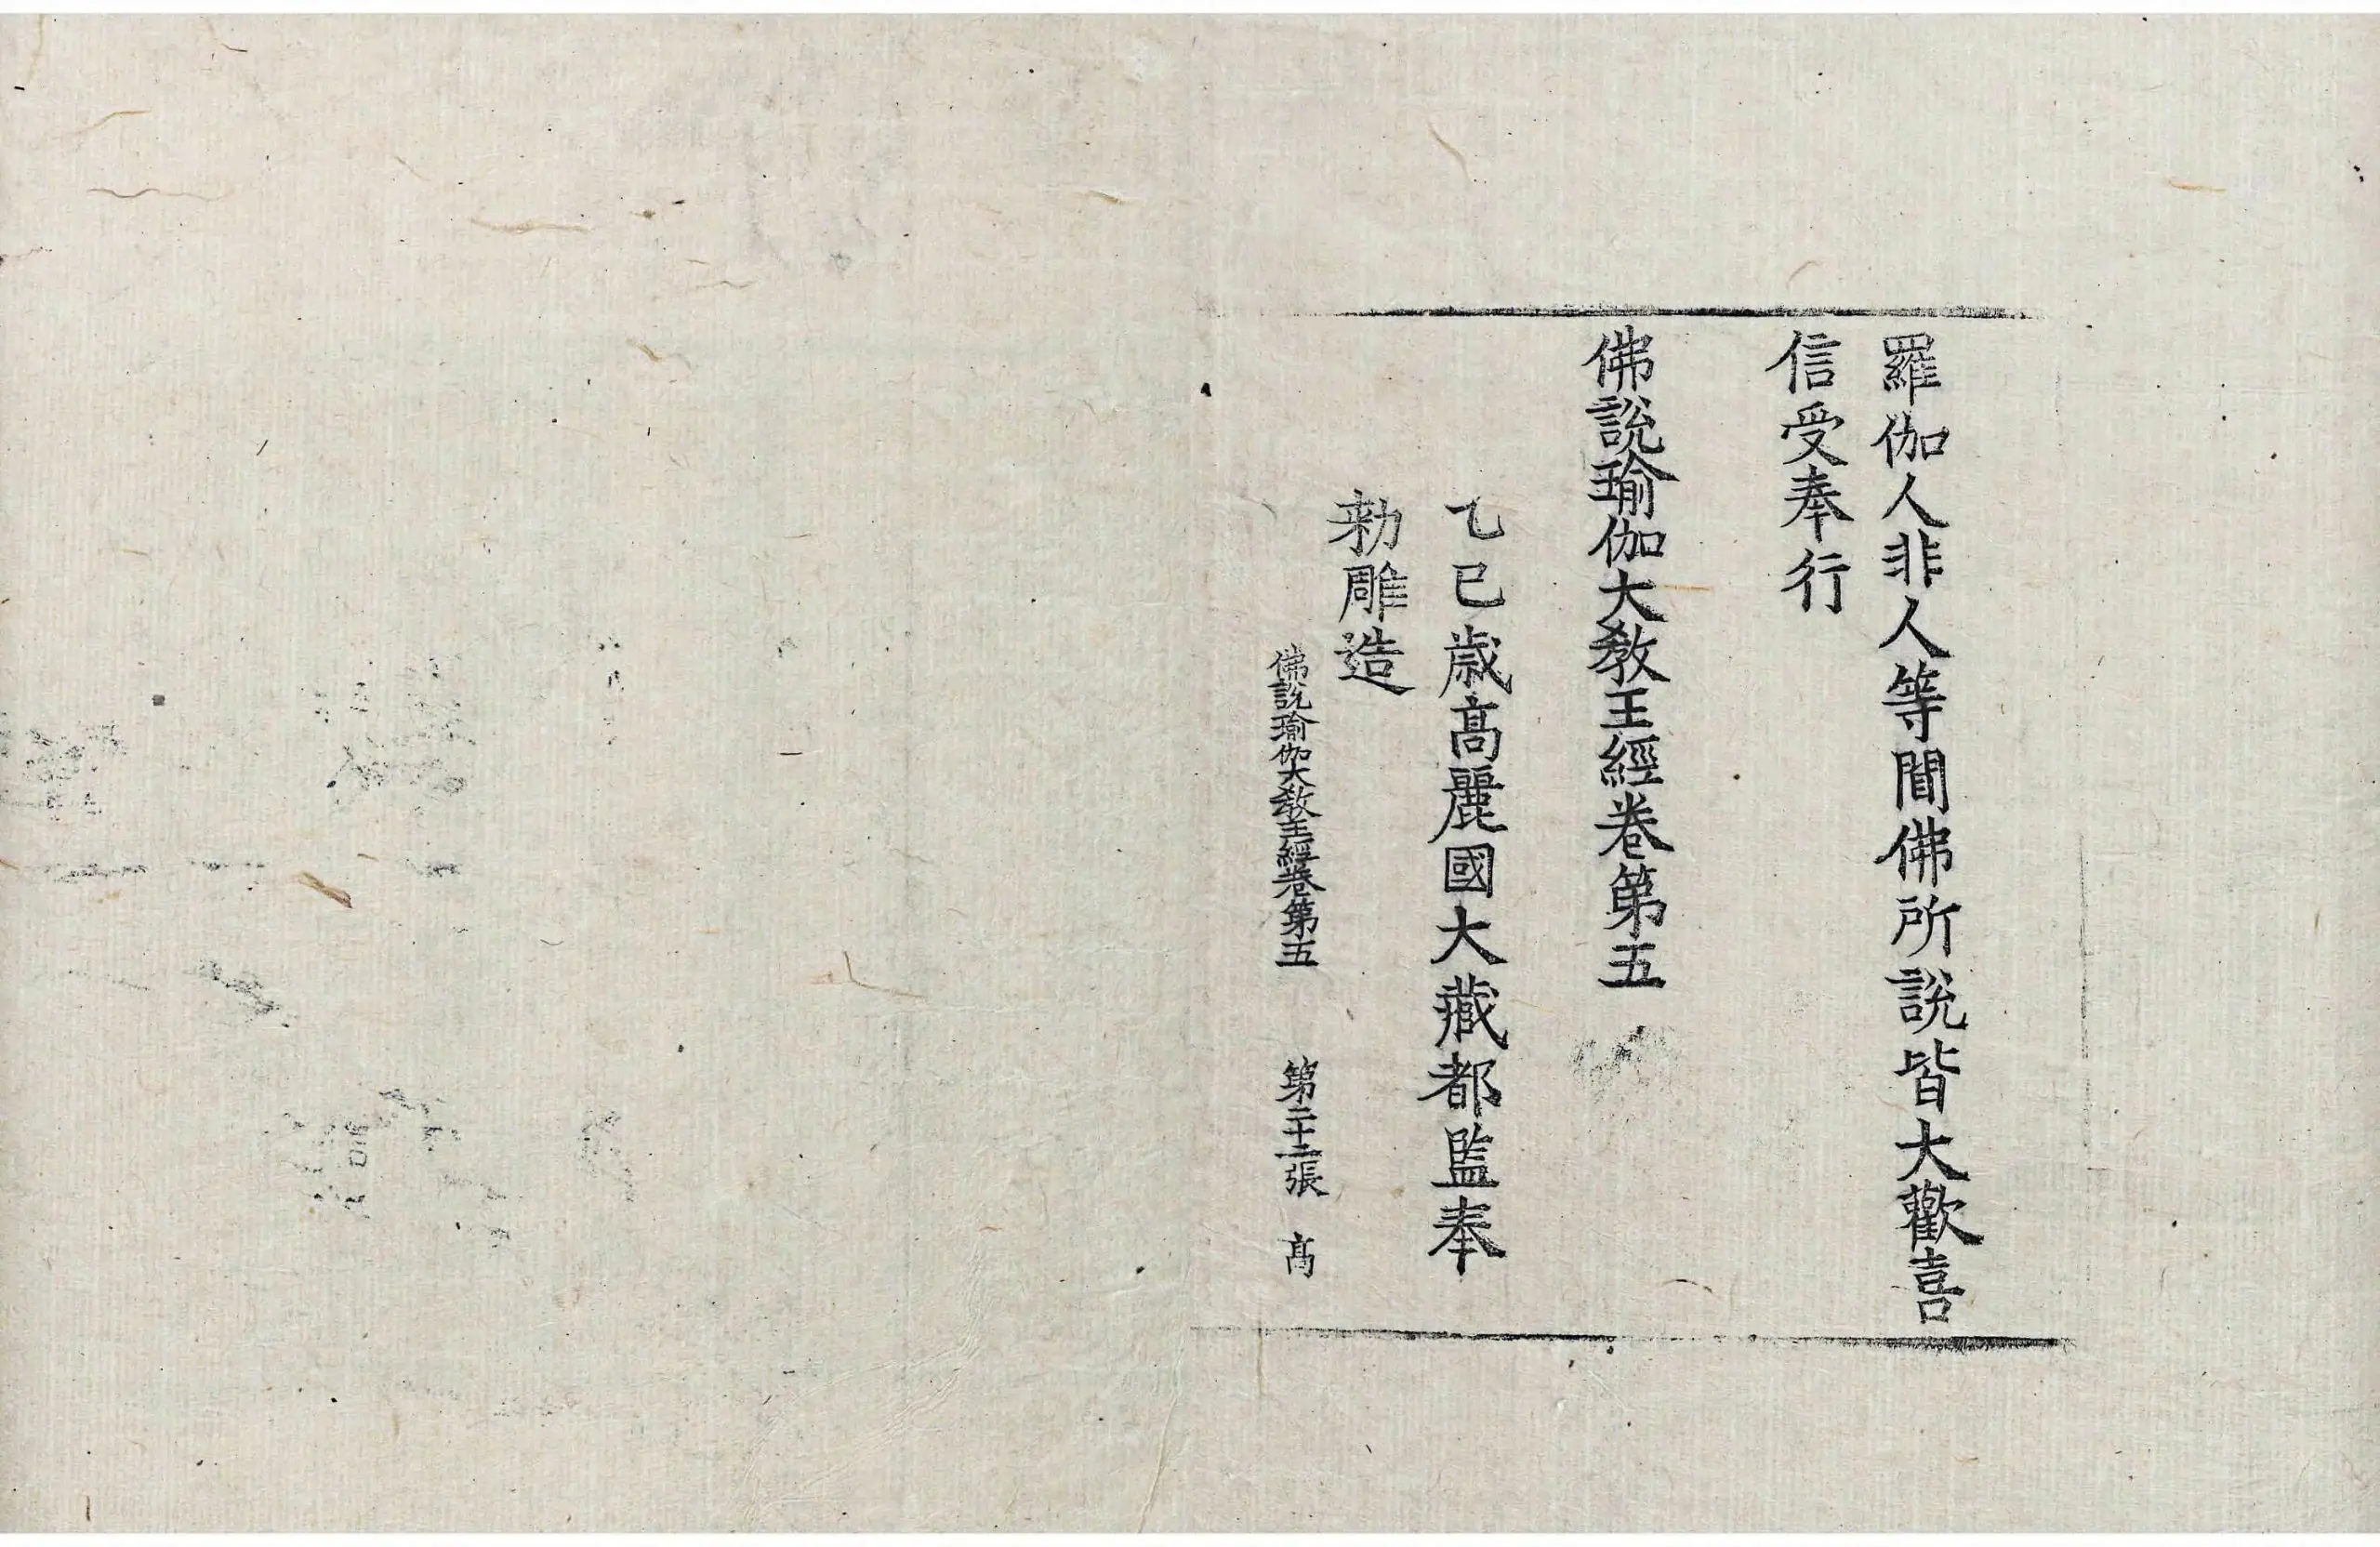 羅伽人非人等聞佛所說皆大歡喜
信受奉行
佛說瑜伽大教王經卷第五
乙巳歳高麗國大藏都監奉
勅雕造
佛說瑜伽大教王經卷第五 第二十二張 高